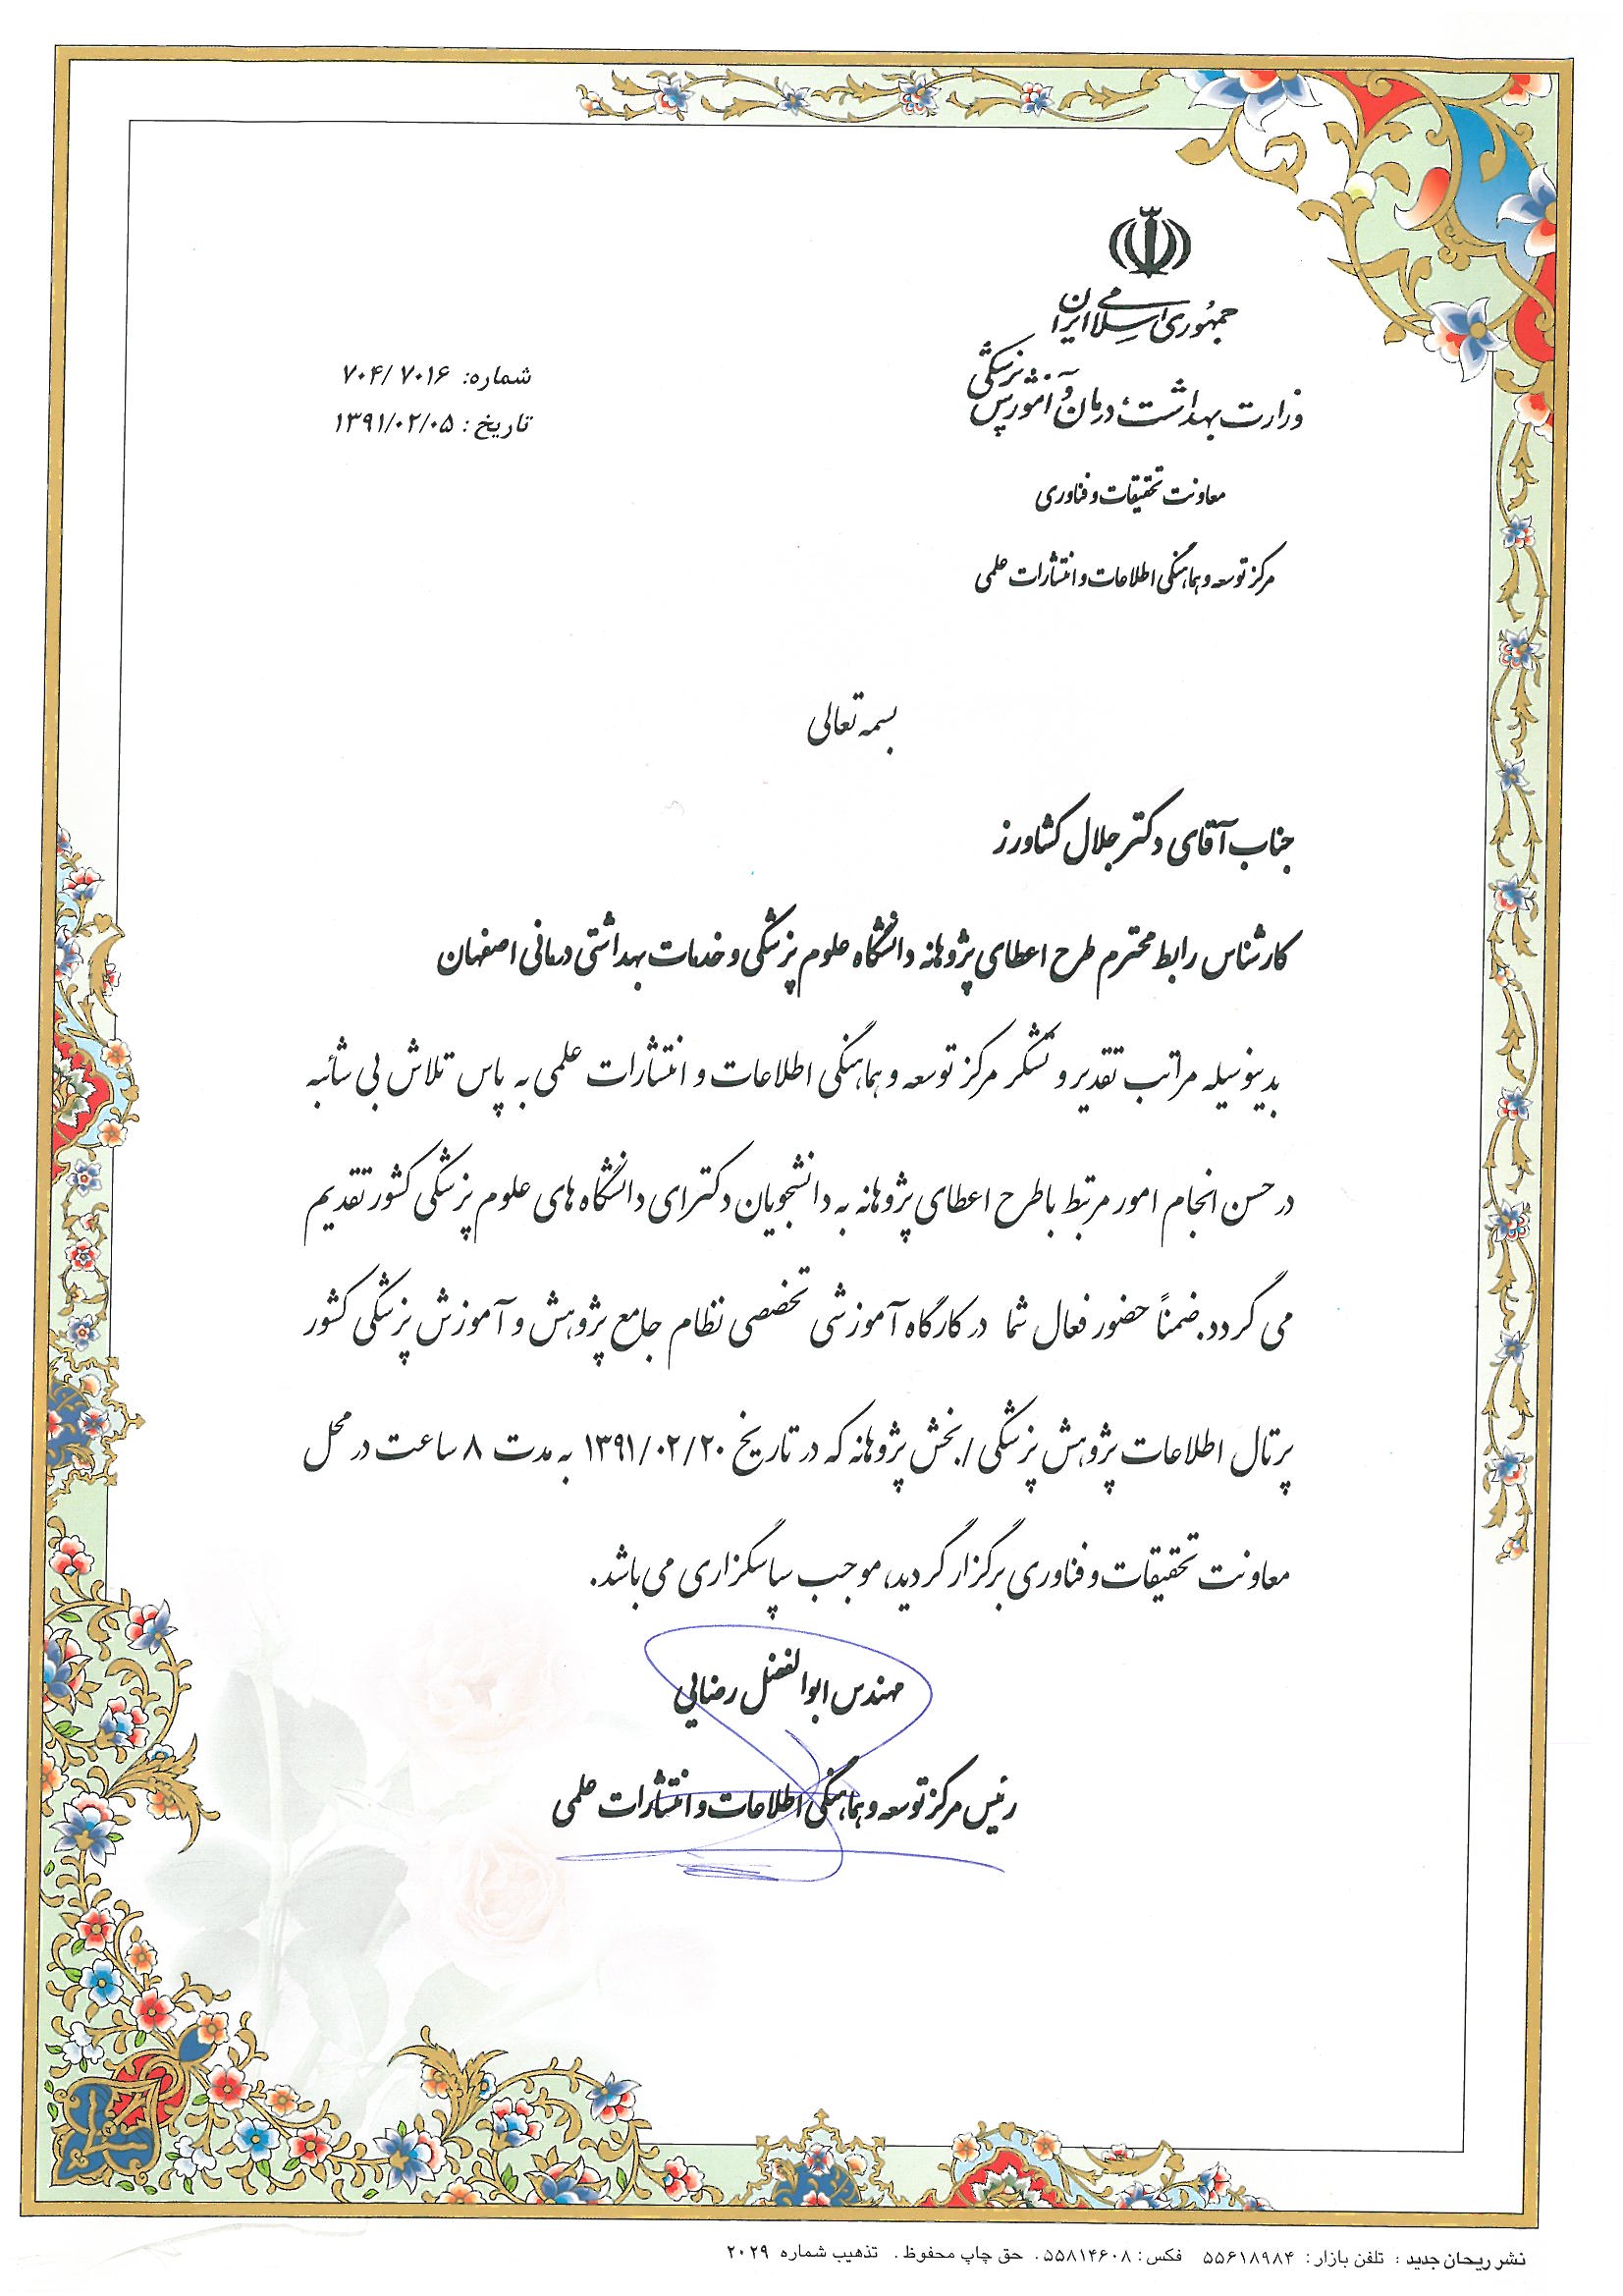 جمهوری اسلامی ایران
وزارت بهداشت، درمان و آموزش پزشکی
معاونت تحقیقات و فناوری
مرکز توسعه و هماهنگی اطلاعات و انتشارات علمی
شماره: ۷۰۴/۷۰۱۶
تاریخ: ۱۳۹۱/۰۲/۰۵
بسمه تعالی
جناب آقای دکتر جلال کشاورز
کارشناس رابط محترم طرح اعطای پژوهانه دانشگاه علوم پزشکی و خدمات بهداشتی درمانی اصفهان
بدینوسیله مراتب تقدیر و تشکر مرکز توسعه و هماهنگی اطلاعات و انتشارات علمی به پاس تلاش بی شائبه
در حسن انجام امور مرتبط با طرح اعطای پژوهانه به دانشجویان دکترای دانشگاه های علوم پزشکی کشور تقدیم
می گردد. ضمناً حضور فعال شما در کارگاه آموزشی تخصصی نظام جامع پژوهش و آموزش پزشکی کشور
پرتال اطلاعات پژوهش پزشکی / بخش پژوهانه که در تاریخ ۱۳۹۱/۰۲/۲۰ به مدت ۸ ساعت در محل
معاونت تحقیقات و فناوری برگزار گردید، موجب سپاسگزاری می باشد.
مهندس ابوالفضل رضایی
رئیس مرکز توسعه و هماهنگی اطلاعات و انتشارات علمی
نشر ریحان جدید : تلفن بازار: ۵۵۶۱۸۹۸۴ فکس: ۵۵۸۱۴۶۰۸. حق چاپ محفوظ. تذهیب شماره ۲۰۲۹